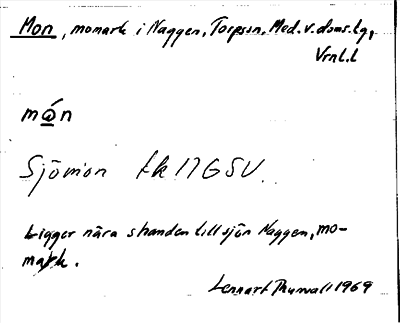 Mon, momark i Naggen, Torpssn, Med.v.doms.lg,
Vrnl.l
mǻn
Sjömon tk 17GSV.
Ligger nära stranden till sjön Naggen, mo-
mark.
Lennart Thunwall 1969